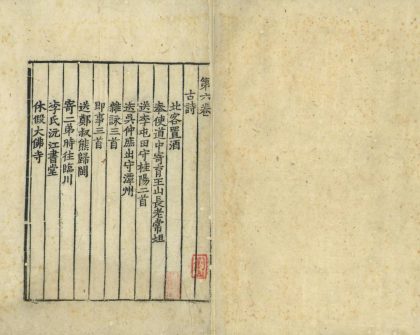 第六卷
古詩
北客置酒
奉使道中寄育王山長老常坦
送李屯田守桂陽二首
送吳仲庶出守潭州
雜詠三首
即事三首
送鄭叔熊歸閩
寄二弟時往臨川
李氏沅江書堂
休假大佛寺